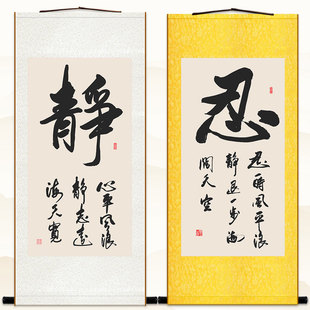 靜
心平風浪
靜志遠
海天寬
忍
忍時風平浪
靜退一步海
闊天空